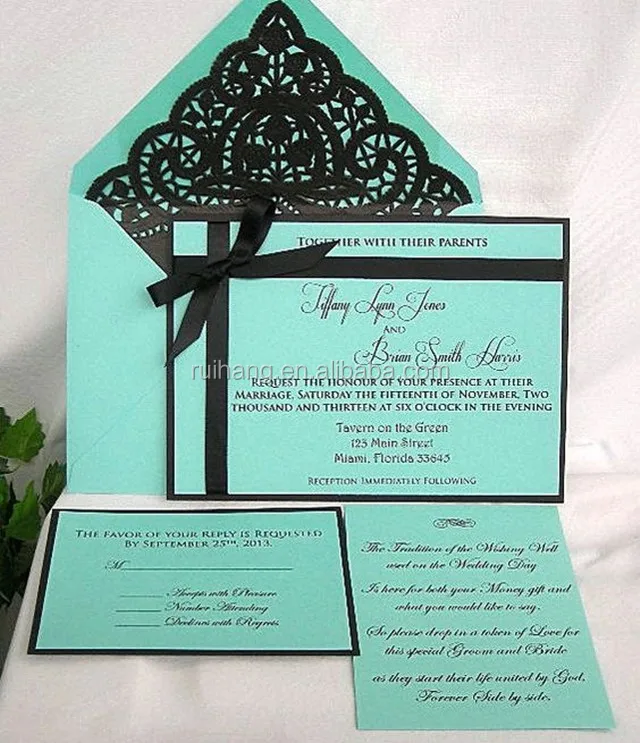 Together with their parents
Tiffany Lynn Jones
and
Brian Smith Harris
Request the honour of your presence at their
Marriage, Saturday the fifteenth of November, Two
thousand and thirteen at six o'clock in the evening
Tavern on the Green
123 Main Street
Miami, Florida 33645
Reception Immediately Following
ruihang.en.alibaba.com
The favor of your Reply is Requested
By September 25th, 2013.
M
Accepts with Pleasure
Number Attending
Declines with Regrets
The Tradition of the Wishing Well
used on the Wedding Day
Is here for both your Money gift and
what you would like to say.
So please drop in a token of Love for
this special Groom and Bride
as they start their life united by God,
Forever Side by side.